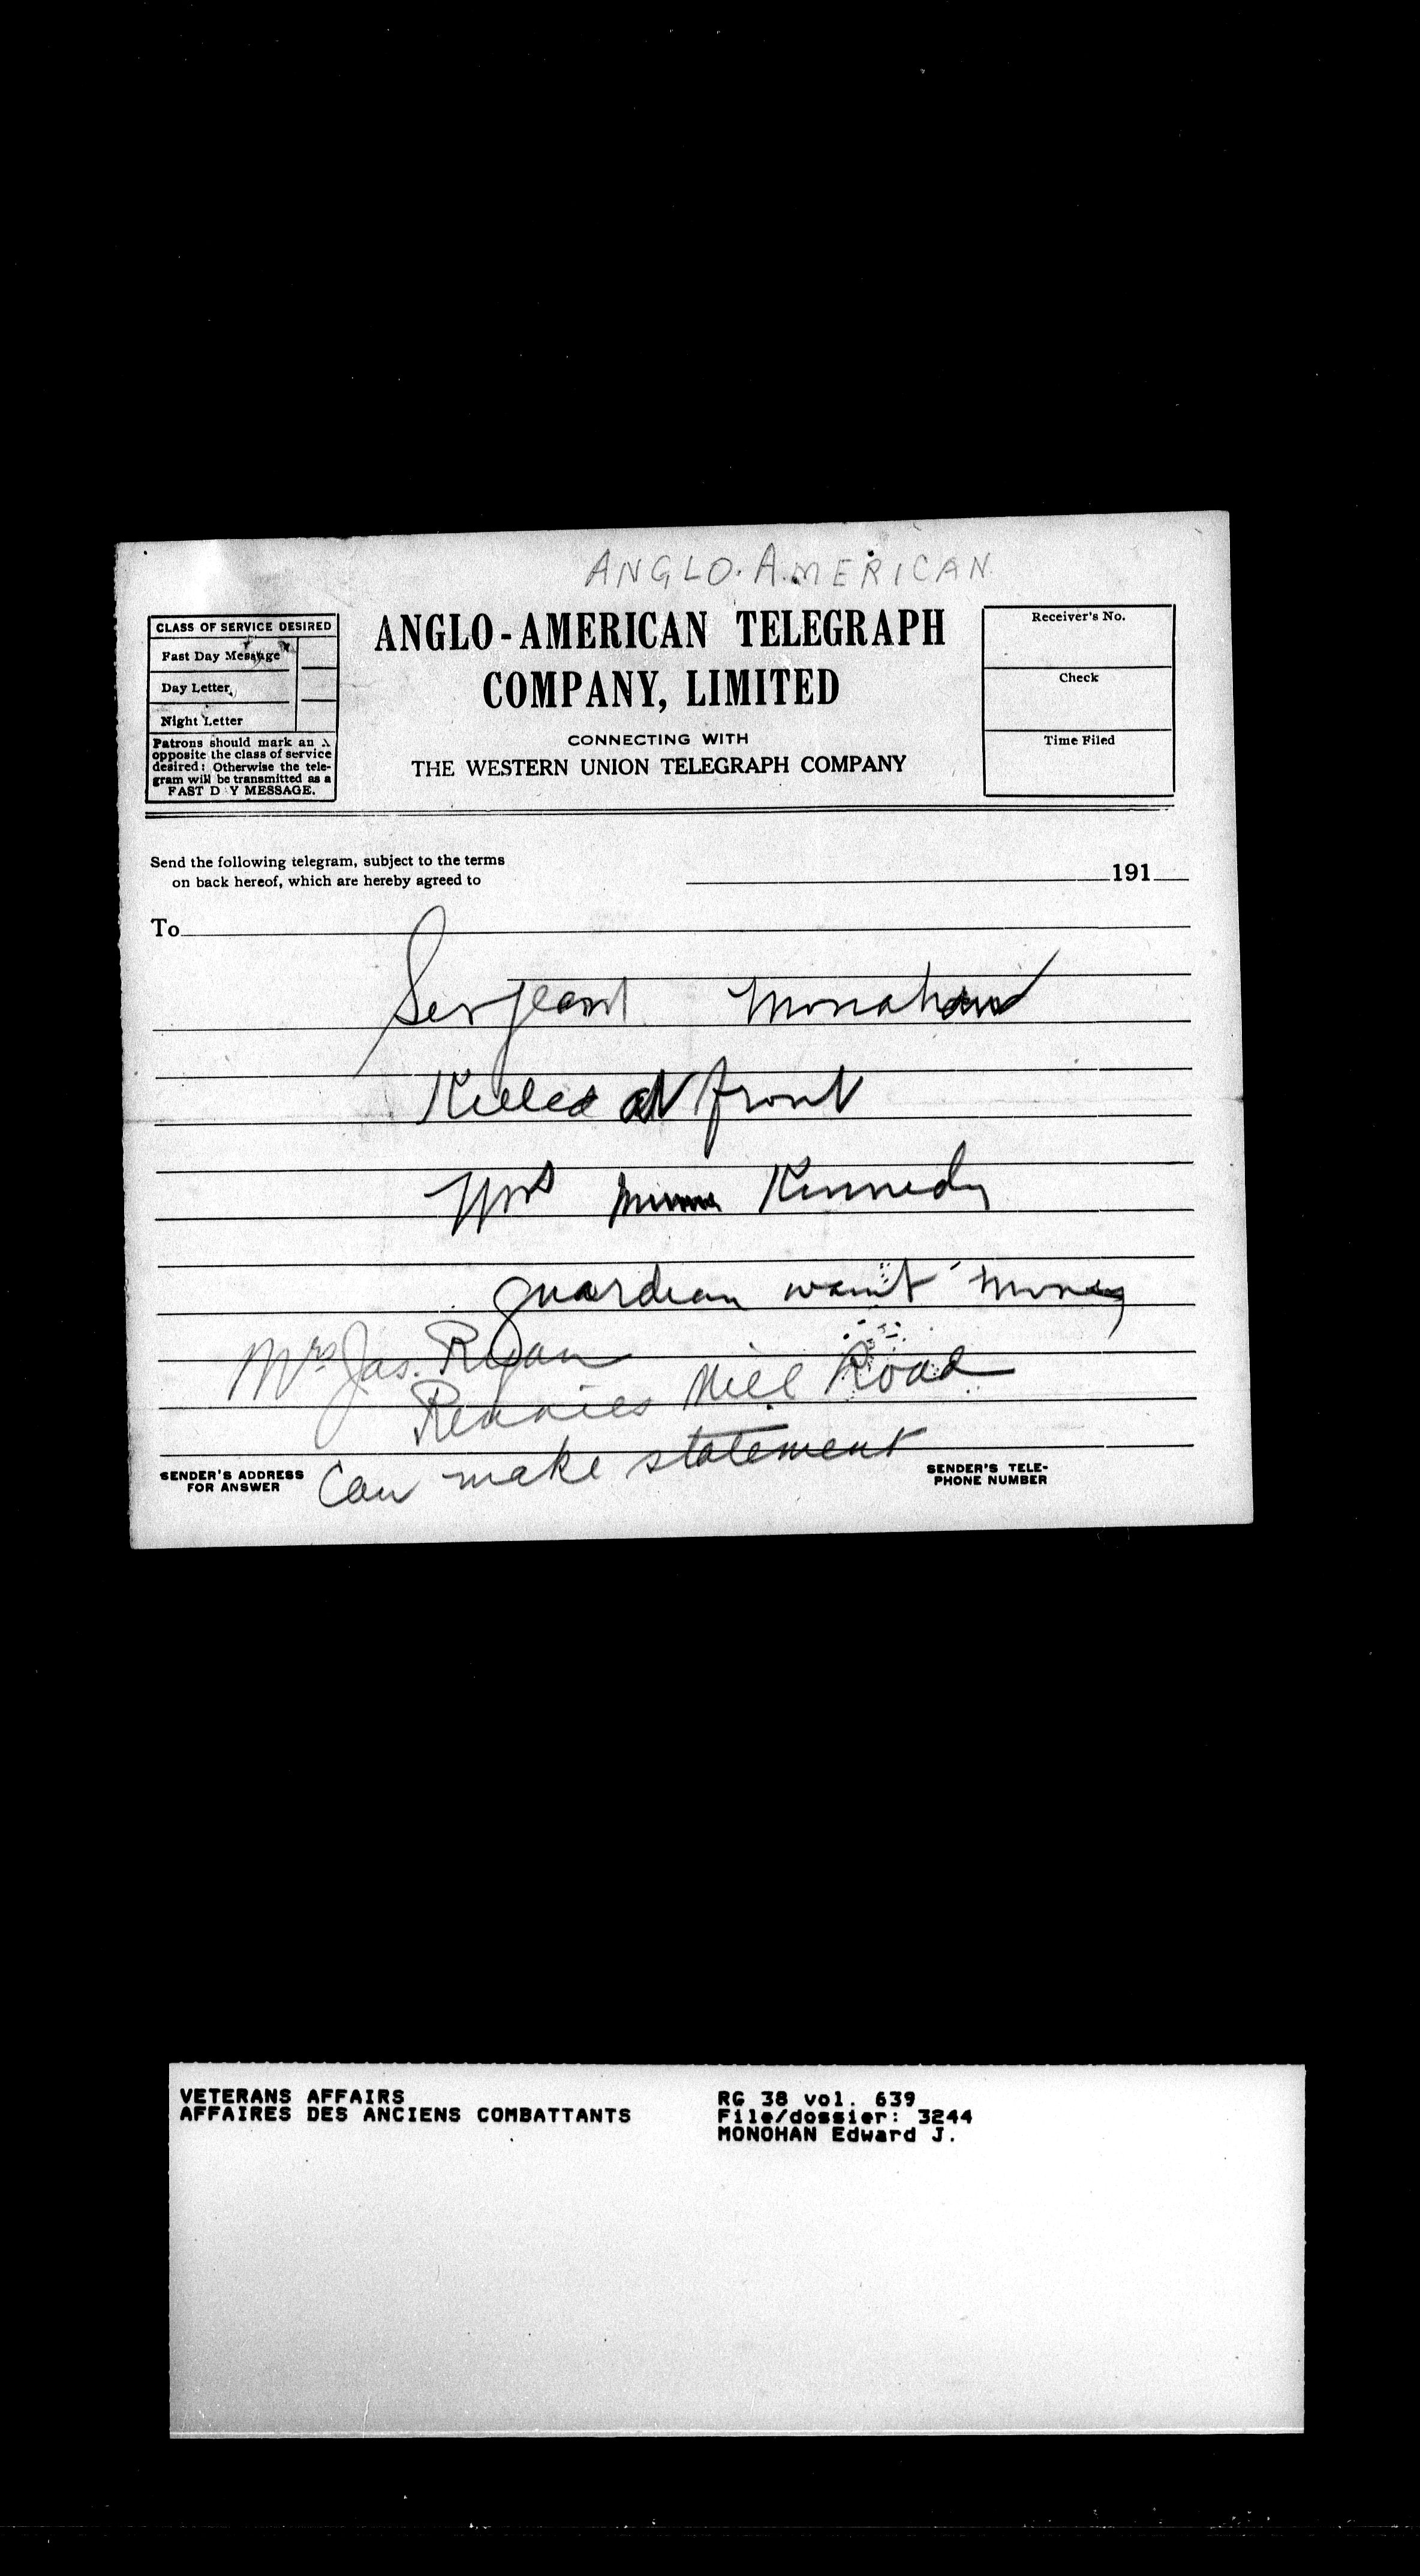 ANGLO-AMERICAN
CLASS OF SERVICE DESIRED
Fast Day Message
Day Letter
Night Letter
Patrons should mark an X
opposite the class of service
desired: Otherwise the tele-
gram will be transmitted as a
FAST D Y MESSAGE.
ANGLO-AMERICAN TELEGRAPH
COMPANY, LIMITED
CONNECTING WITH
THE WESTERN UNION TELEGRAPH COMPANY
Receiver's No.
Check
Time Filed
Send the following telegram, subject to the terms
on back hereof, which are hereby agreed to
191
To
Sergeant Monahan
Killed at front
Mrs Kennedy
guardian want money
Mrs Jas. Ryan
Rennies Mill Road
Can make statement
SENDER'S ADDRESS
FOR ANSWER
SENDER'S TELE-
PHONE NUMBER
VETERANS AFFAIRS
AFFAIRES DES ANCIENS COMBATTANTS
RG 38 vol. 639
File/dossier: 3244
MONOHAN Edward J.